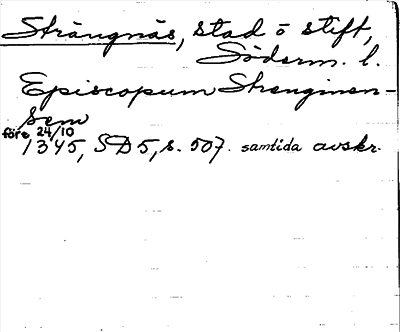 Strängnäs, stad o stift,
Söderm. l.
Episcopum Strenginen-
sem
före 24/10
1345, SD 5, s. 507. samtida avskr.